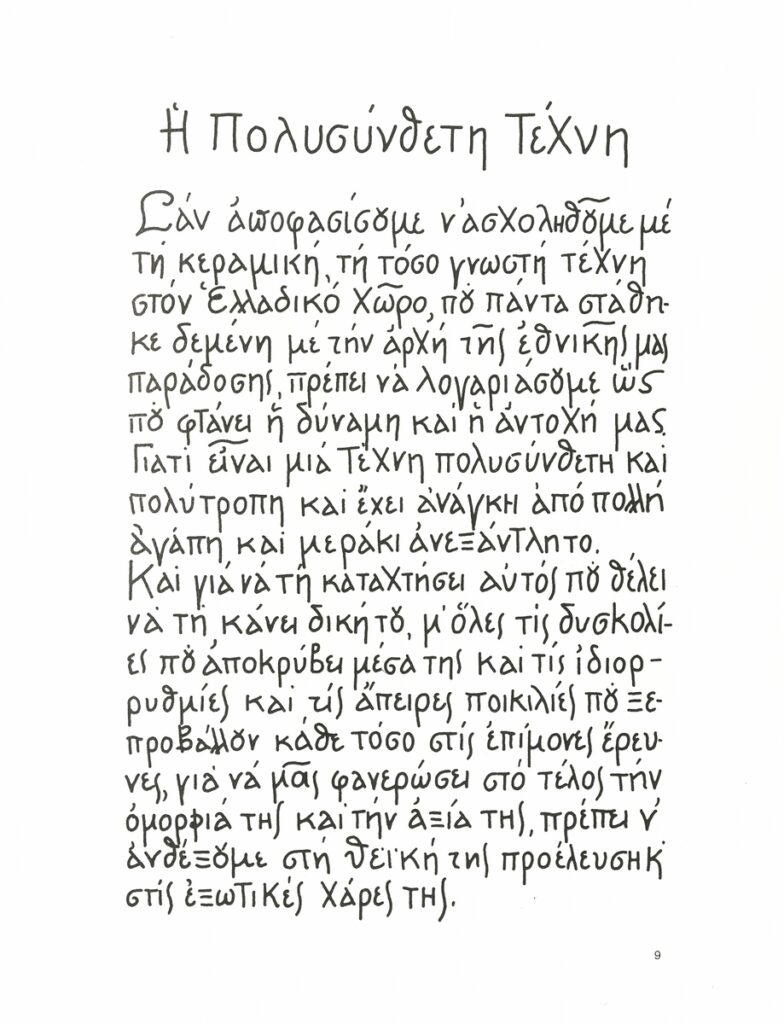 Ἡ Πολυσύνθετη Τέχνη
Σάν ἀποφασίσουμε ν' ἀσχοληθοῦμε μέ
τή κεραμική, τή τόσο γνωστή τέχνη
στόν Ἑλλαδικό Χῶρο, πού πάντα στάθη-
κε δεμένη μέ τήν ἀρχή τῆς ἐθνικῆς μας
παράδοσης, πρέπει νά λογαριάσουμε ὥς
πού φτάνει ἡ δύναμη καί ἡ ἀντοχή μας.
Γιατί εἶναι μιά Τέχνη πολυσύνθετη καί
πολύτροπη καί ἔχει ἀνάγκη ἀπό πολλή
ἀγάπη καί μεράκι ἀνεξάντλητο.
Καί γιά νά τή καταχτήσει αὐτός πού θέλει
νά τή κάνει δική του, μ' ὅλες τίς δυσκολί-
ες πού ἀποκρύβει μέσα της καί τίς ἰδιορ-
ρυθμίες καί τίς ἄπειρες ποικιλίες πού ξε-
προβάλλουν κάθε τόσο στίς ἐπίμονες ἔρευ-
νες, γιά νά μᾶς φανερώσει στό τέλος τήν
ὀμορφιά της καί τήν ἀξία της, πρέπει ν'
ἀνθέξουμε στή θεϊκή της προέλευση κ'
στίς ἐξωτικές χάρες της.
9